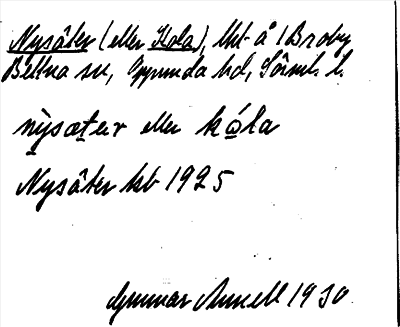 Nysäter (eller Kola), lht å 1 Broby
Bettna sn, Oppunda hd, Söml. l.
nỳsætεr eller kóla
Nysäter kb 1925
Gunnar Annell 1930